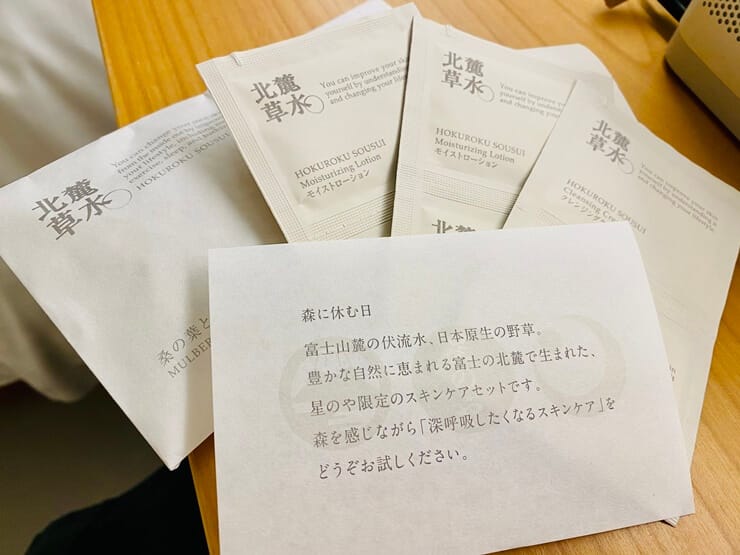 北麓
草水
You can change your
from the inside out by
your lifestyle, including
exercise, sleep, and
HOKUROKU SOUSUI
桑の葉と
MULBER
北麓
草水
You can improve your ski
yourself by understandin
and changing your life
HOKUROKU SOUSUI
Moisturizing Lotion
モイストローション
北麓
草水
You can improve
yourself by unders
and changing you
HOKUROKU SOUSUI
Moisturizing Lotion
モイストローション
北麓
草水
You can improve your skin
yourself by understanding
and changing your lifestyle.
HOKUROKU SOUSUI
Cleansing Cre
クレンジング
森に休む日
富士山麓の伏流水、日本原生の野草。
豊かな自然に恵まれる富士の北麓で生まれた、
星のや限定のスキンケアセットです。
森を感じながら「深呼吸したくなるスキンケア」を
どうぞお試しください。